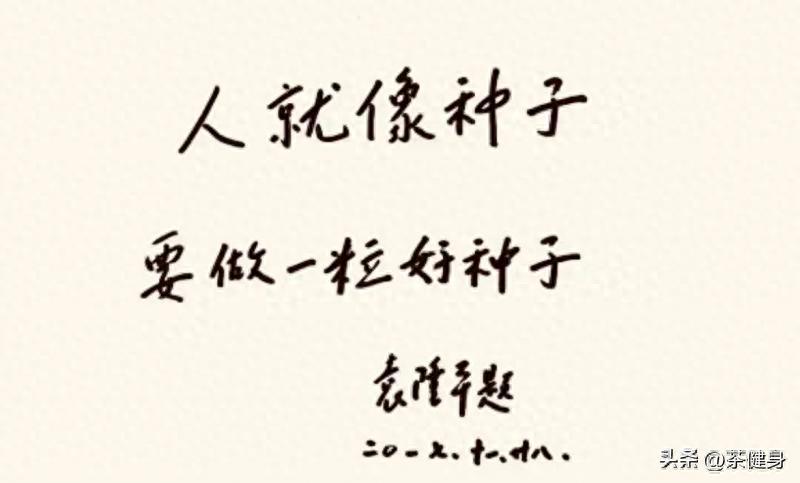 人就像种子
要做一粒好种子
袁隆平题
二〇一七、十一、廿八.
头条 @茶健身